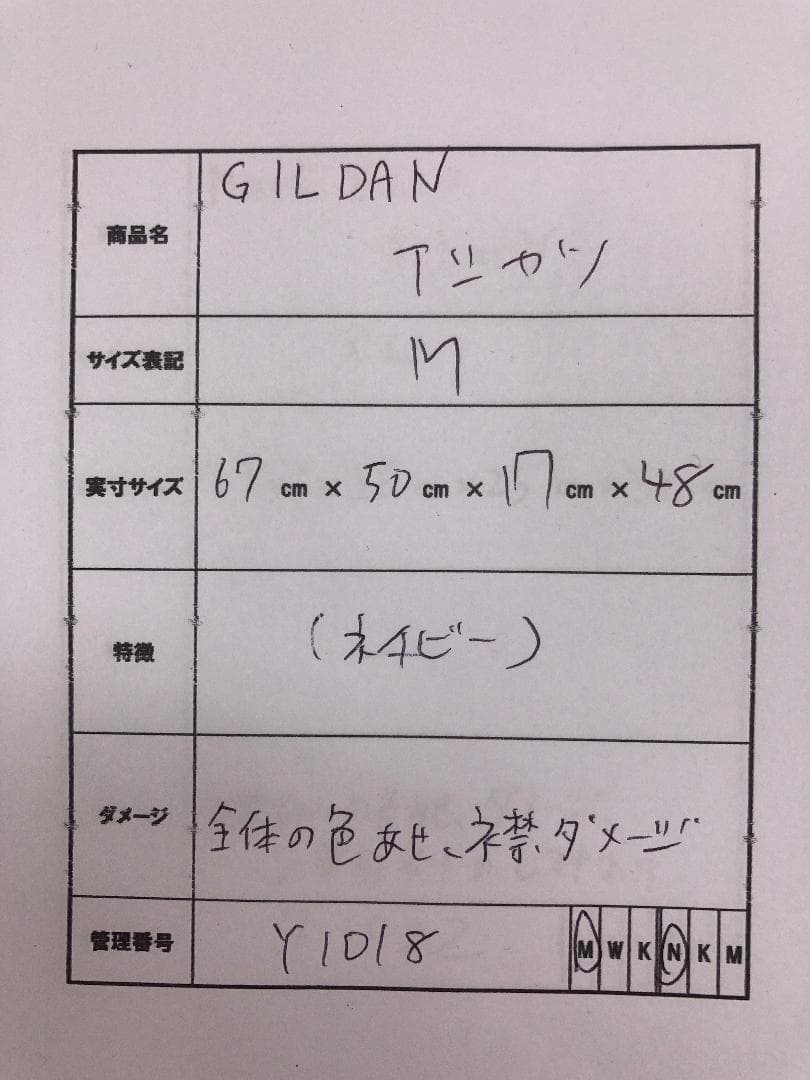 商品名 GILDAN
Tシャツ
サイズ表記 M
実寸サイズ 67 cm × 50 cm × 17 cm × 48 cm
特徴 (ネイビー)
ダメージ 全体の色あせ、襟ダメージ
管理番号 Y1018 M W K N K M